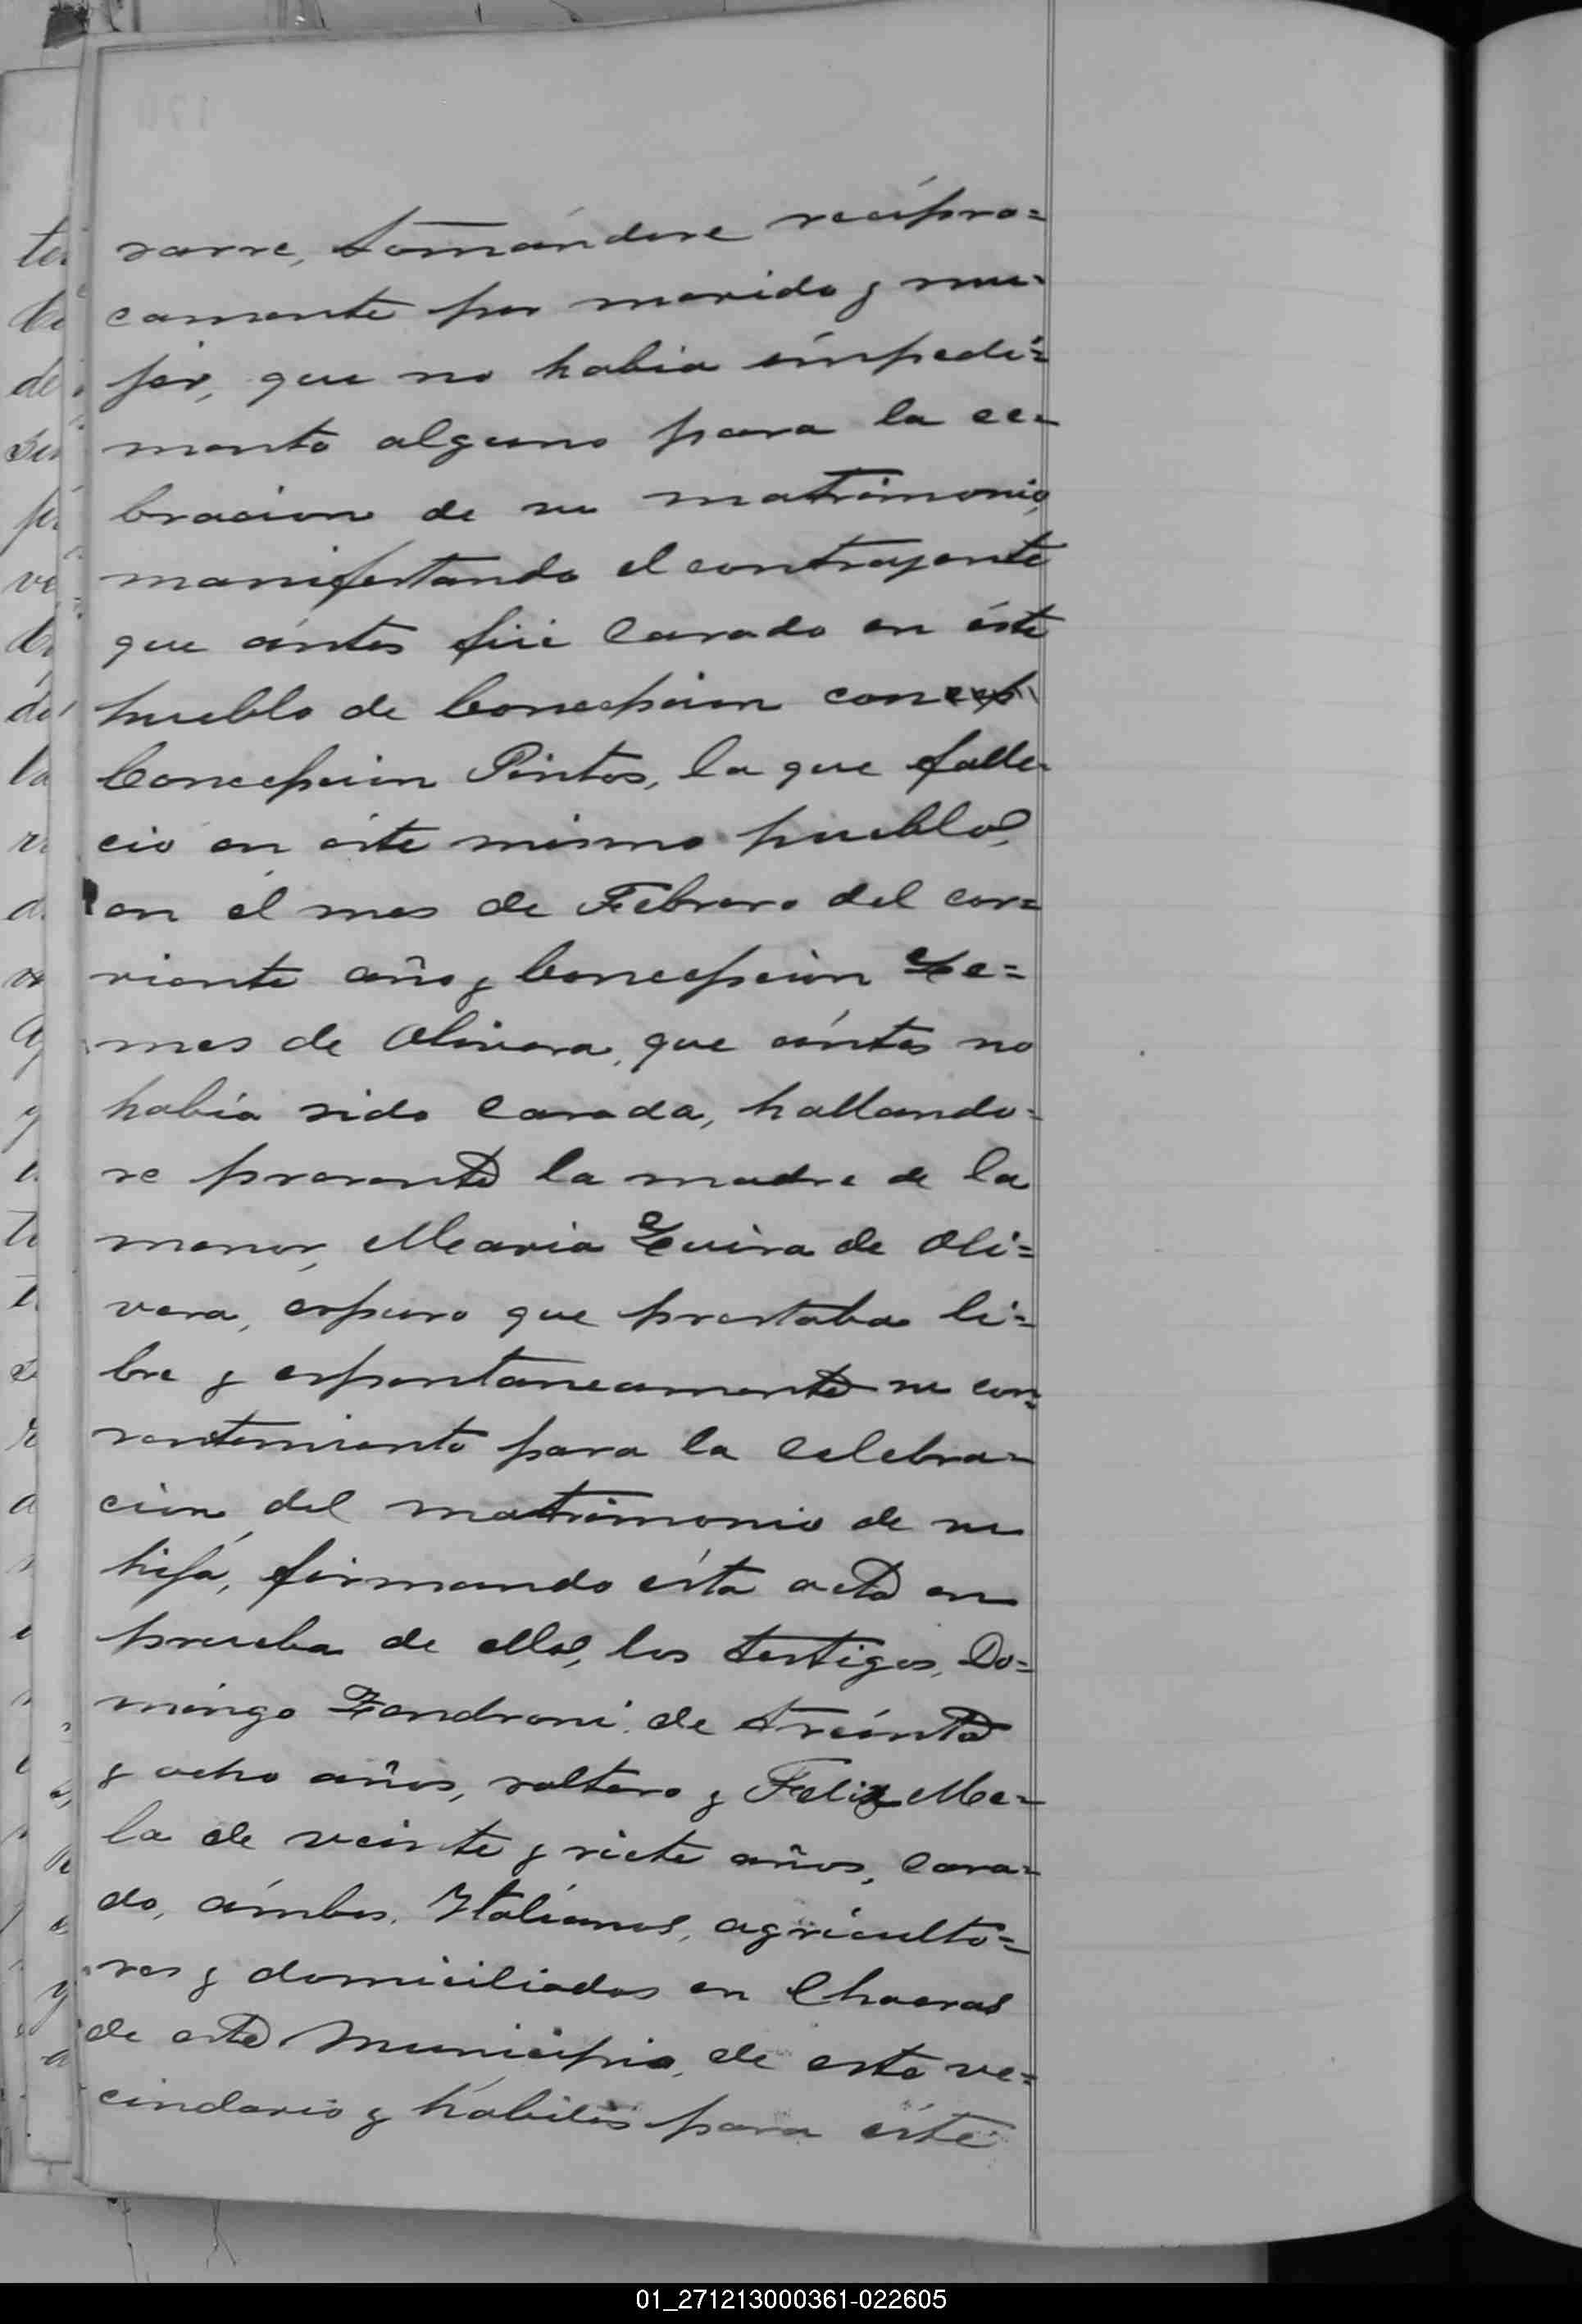 sarse, tomándose recípro=
camente por marido y mu=
jer, que no habia impedi=
mento alguno para la ce=
bracion de su matrimonio,
manifestando el contrayente
que ántes fué casado en éste
pueblo de Concepcion con
Concepcion Pintos, la que falle=
ció en éste mismo pueblo,
en el mes de Febrero del cor=
riente año y Concepcion Le=
mes de Olivera, que ántes no
habia sido casada, hallando=
se presente la madre de la
menor, Maria de Oli=
vera, espuso que prestaba li=
bre y espontaneamente su con=
sentimiento para la celebra=
cion del matrimonio de su
hija, firmando ésta acta en
prueba de ello, los testigos, Do=
mingo Zendroni de treinta
y ocho años, soltero y Felix Me=
la de veinte y siete años, casa=
do, ámbos, Italianos, agriculto=
res y domiciliados en Chacras
de este Municipio, de este ve=
cindario y hábiles para éste
01_271213000361-022605